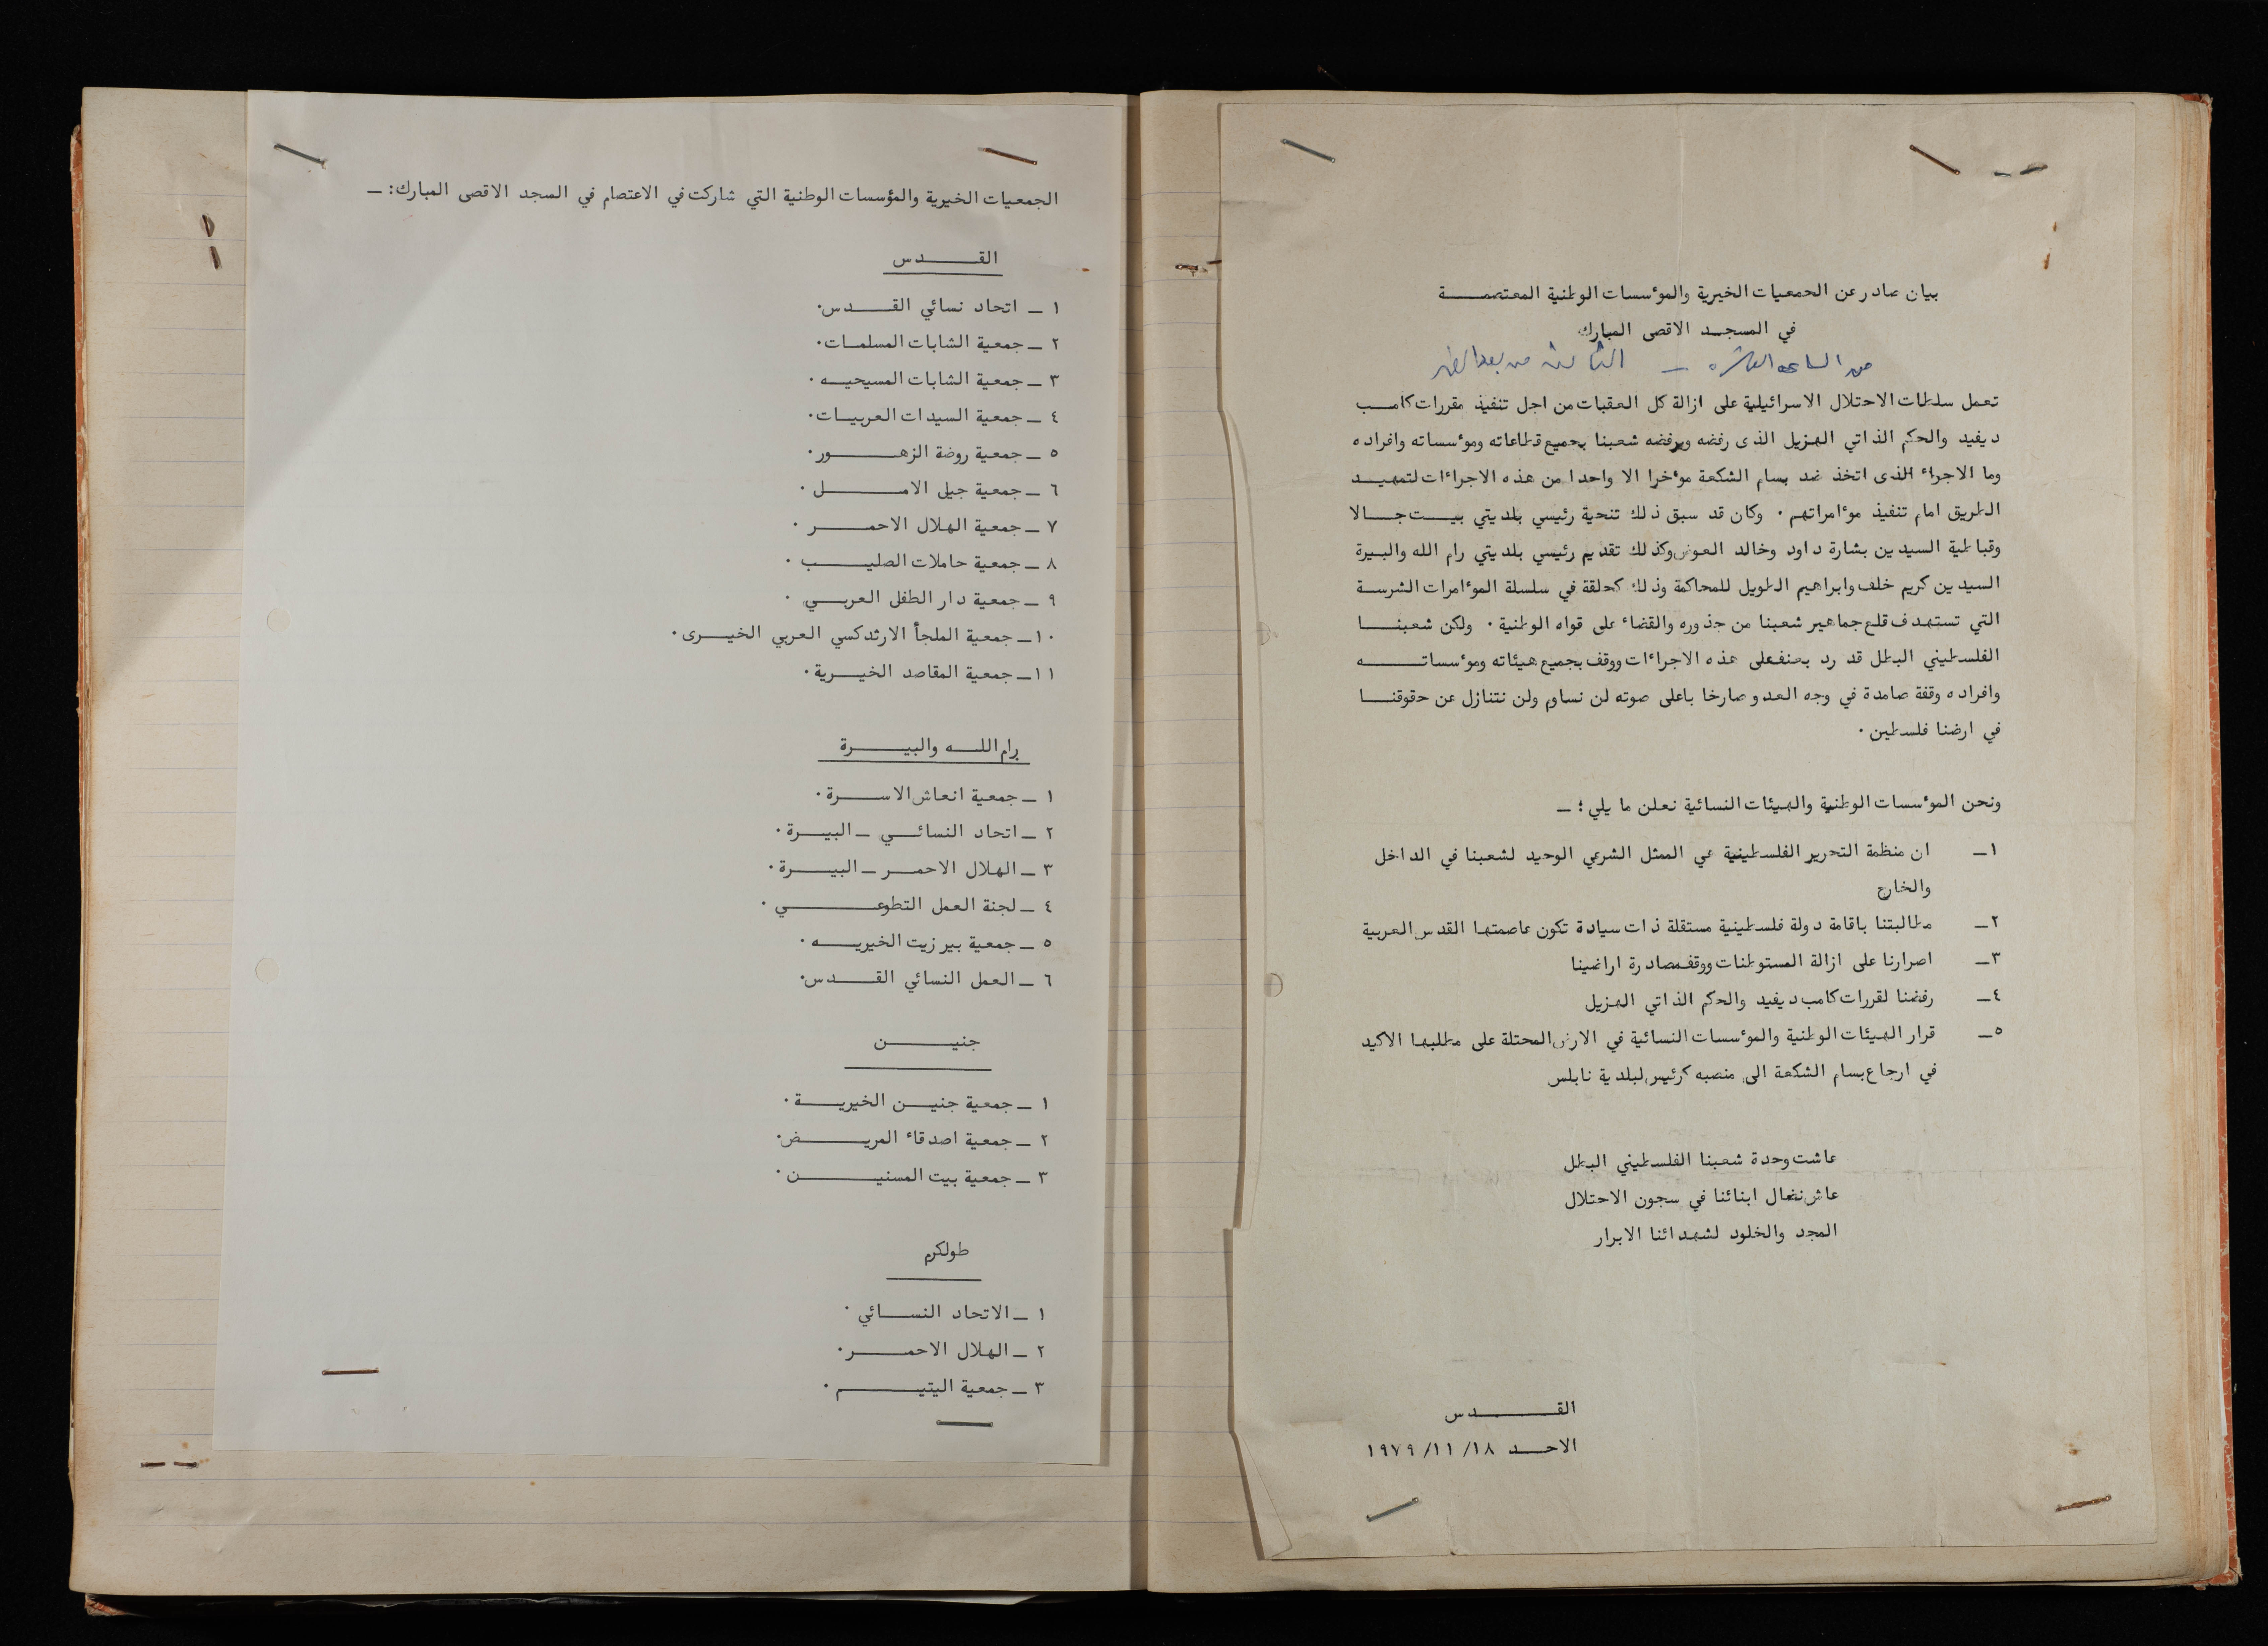 بيان صادر عن الجمعيات الخيرية والموٴسسات الوطنية المعتصمـــــة
في المسجــد الاقصى المبارك
من الساعه العاشره — الثالثة من بعد الظهر
تعمل سلطات الاحتلال الاسرائيلية على ازالة كل العقبات من اجل تنفيذ مقررات كامـــب
ديفيد والحكم الذاتي الهزيل الذى رفضه ويرفضه شعبنا بجميع قطاعاته وموٴسساته وافراده
وما الاجراء الذى اتخذ ضد بسام الشكعة موٴخرا الا واحدا من هذه الاجراءات لتمهيــد
الطريق امام تنفيذ موٴامراتهم . وكان قد سبق ذلك تنحية رئيسي بلديتي بيــت جـــالا
وقباطية السيدين بشارة داود وخالد العوض وكذلك تقديم رئيسي بلديتي رام الله والبــيرة
السيدين كريم خلف وابراهيم الطويل للمحاكمة وذلك كحلقة في سلسلة الموٴامرات الشرســة
التي تستهدف قلع جماهير شعبنا من جذوره والقضاء على قواه الوطنية . ولكن شعبنـــا
الفلسطيني البطل قد رد بعنف على هذه الاجراءات ووقف بجميع هيئاته وموٴسساتـــــه
وافراده وقفة صامدة في وجه العدو صارخا باعلى صوته لن نساوم ولن نتنازل عن حقوقنـــا
في ارضنا فلسطين .
ونحن الموٴسسات الوطنية والهيئات النسائية نعلن ما يلي : —
١ــ ان منظمة التحرير الفلسطينية هي الممثل الشرعي الوحيد لشعبنا في الداخل
والخارج
٢ــ مطالبتنا باقامة دولة فلسطينية مستقلة ذات سيادة تكون عاصمتها القدس العربية
٣ــ اصرارنا على ازالة المستوطنات ووقف مصادرة اراضينا
٤ــ رفضنا لقررات كامب ديفيد والحكم الذاتي الهزيل
٥ــ قرار الهيئات الوطنية والموٴسسات النسائية في الارض المحتلة على مطلبها الاكيد
في ارجاع بسام الشكعة الى منصبه كرئيس لبلدية نابلس
عاشت وحدة شعبنا الفلسطيني البطل
عاش نضال ابنائنا في سجون الاحتلال
المجد والخلود لشهدائنا الابرار
القــــــدس
الاحــد ١٩٧٩/١١/١٨
الجمعيات الخيرية والمؤسسات الوطنية التي شاركت في الاعتصام في السجد الاقصى المبارك: —
القــــــدس
١ ــ اتحاد نسائي القــــدس.
٢ ــ جمعية الشابات المسلمـات.
٣ ــ جمعية الشابات المسيحيـه .
٤ ــ جمعية السيدات العربيـات.
٥ ــ جمعية روضة الزهــــــور.
٦ ــ جمعية جيل الامــــــل .
٧ ــ جمعية الهلال الاحمــــر .
٨ ــ جمعية حاملات الصليــــب .
٩ ــ جمعية دار الطفل العربـــي .
١٠ ــ جمعية الملجأ الارثدكسي العربي الخيـــرى.
١١ ــ جمعية المقاصد الخيـــرية.
رام اللــه والبيـــــرة
١ ــ جمعية انعاش الاســــرة.
٢ ــ اتحاد النسائــي ــ البيـــرة.
٣ ــ الهلال الاحمــر ــ البيـــرة.
٤ ــ لجنة العمل التطوعـــــــي .
٥ ــ جمعية بير زيت الخيريـــه .
٦ ــ العمل النسائي القــــدس.
جنيــــــن
١ ــ جمعية جنيــن الخيريـــة.
٢ ــ جمعية اصدقاء المريـــــض.
٣ ــ جمعية بيت المسنيــــــن .
طولكرم
١ ــ الاتحاد النســـائي .
٢ ــ الهلال الاحمـــــر.
٣ ــ جمعية اليتيــــــم .